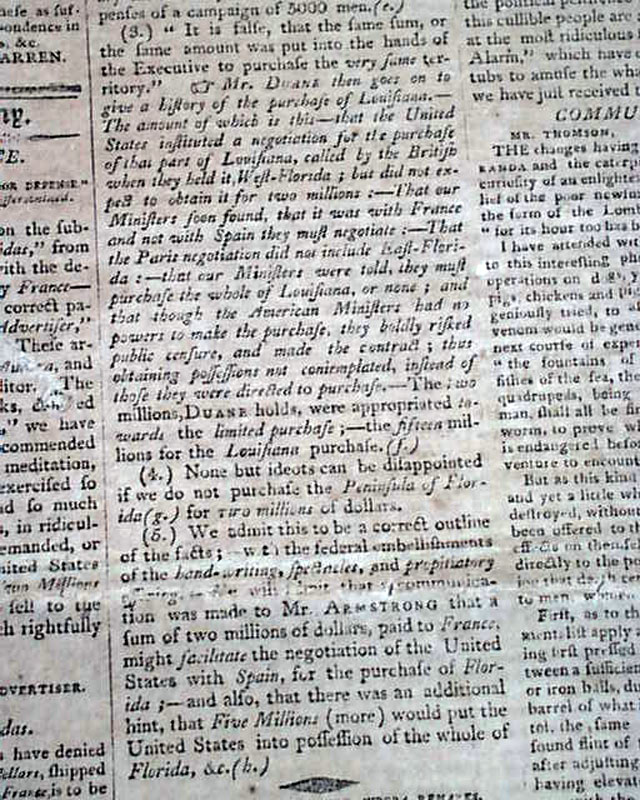 nese as suf-
pondence in
s, &c.
WARREN.
ny.
CE.
OR DEFENSE."
on the sub-
idas," from
with the de-
y France—
correct pa-
dvertiser,"
These ar-
and
ditor. The
ks, ed
," we have
commended
meditation,
exercised so
ad so much
s, in ridicul-
emanded, or
nited States
Millions
fell to the
ch rightfully
DVERTISER.
das.
s have denied
ollars, shipped
France, is to be
penses of a campaign of 5000 men.(e.)
(3.) " It is false, that the same sum, or
the same amount was put into the hands of
the Executive to purchase the very same ter-
ritory." ☞ Mr. DUANE then goes on to
give a history of the purchase of Louisiana.—
The amount of which is this—that the United
States instituted a negotiation for the purchase
of that part of Louisiana, called by the British
when they held it, West-Florida ; but did not ex-
pect to obtain it for two millions :—That our
Ministers soon found, that it was with France
and not with Spain they must negotiate :—That
the Paris negotiation did not include East-Flori-
da :—that our Ministers were told, they must
purchase the whole of Louisiana, or none ; and
that though the American Ministers had no
powers to make the purchase, they boldly risked
public censure, and made the contract ; thus
obtaining possessions not contemplated, instead of
those they were directed to purchase.—The two
millions, DUANE holds, were appropriated to-
wards the limited purchase ;—the fifteen mil-
lions for the Louisiana purchase.(f.)
(4.) None but ideots can be disappointed
if we do not purchase the Peninsula of Flor-
ida(g.) for two millions of dollars.
(5.) We admit this to be a correct outline
of the facts ; the federal embellishments
of the hand-writing, spectacles, and propitiatory
communica-
tion was made to Mr. ARMSTRONG that a
sum of two millions of dollars, paid to France,
might facilitate the negotiation of the United
States with Spain, for the purchase of Flor-
ida ;—and also, that there was an additional
hint, that Five Millions (more) would put the
United States into possession of the whole of
Florida, &c.(h.)
the political
this cullible people are
at the most ridiculous
Alarm," which have
tubs to amuse the wh
we have just received
COMMU
MR. THOMSON,
THE changes having
RANDA and the
curiosity of an enlighte
lief of the poor newsm
the form of the Lom
" for its hour too has
I have attended wo
to this interesting ph
operations on
pigs, chickens and
geniously tried, to
venom would be gene
next course of exper
" the fountains of
fishes of the sea, the
quadrupeds, being
man, shall all be
worm, to prove wh
is endangered before
venture to encount
But as this kind
and yet a little wh
destroyed, without
been offered to
directly to the po
to men,
First, as to th
apply
ing first pressed
tween a sufficien
or iron balls, du
barrel of what
tol. the same
found flint of
after adjusting
having elevat